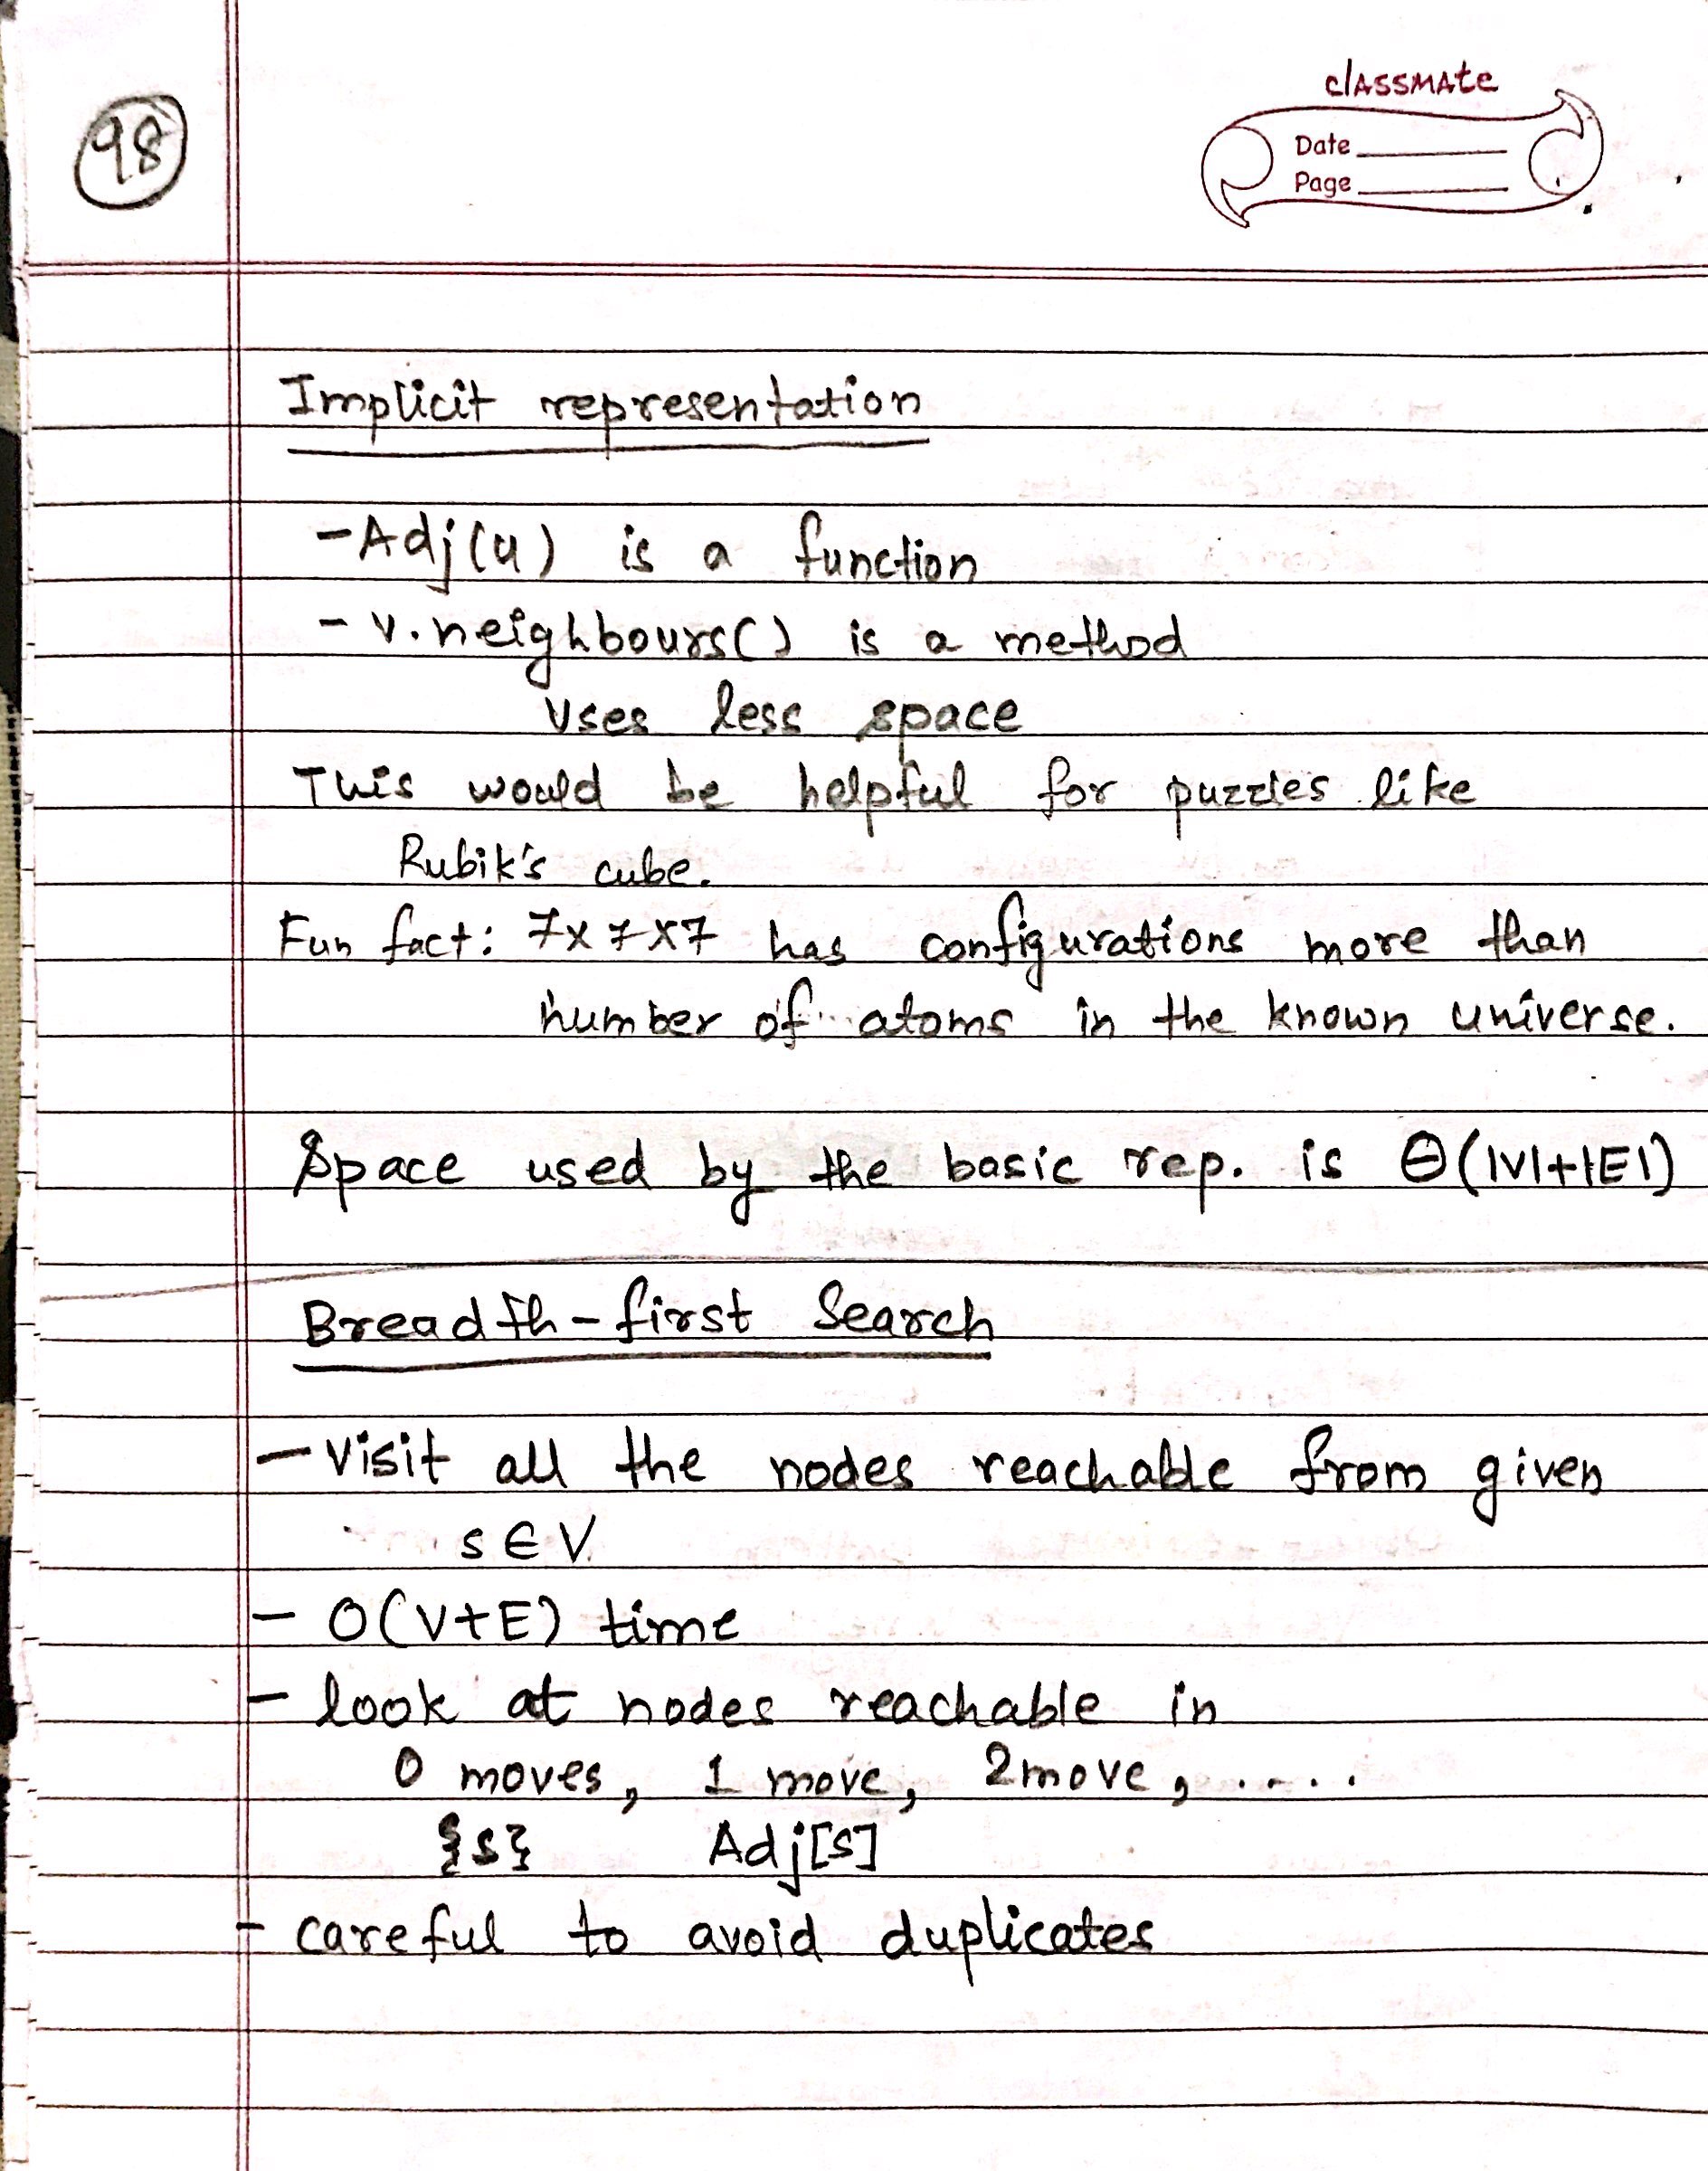 98
classmate
Date
Page
Implicit representation
- Adj(u) is a function
- v.neighbours() is a method
Uses less space
This would be helpful for puzzles like
Rubik's cube.
Fun fact: 7x7x7 has configurations more than
number of atoms in the known universe.
Space used by the basic rep. is Θ(|V|+|E|)
Breadth-first Search
- Visit all the nodes reachable from given
s ∈ V
- O(V+E) time
- look at nodes reachable in
0 moves, 1 move, 2move, .....
{s} Adj[s]
- careful to avoid duplicates